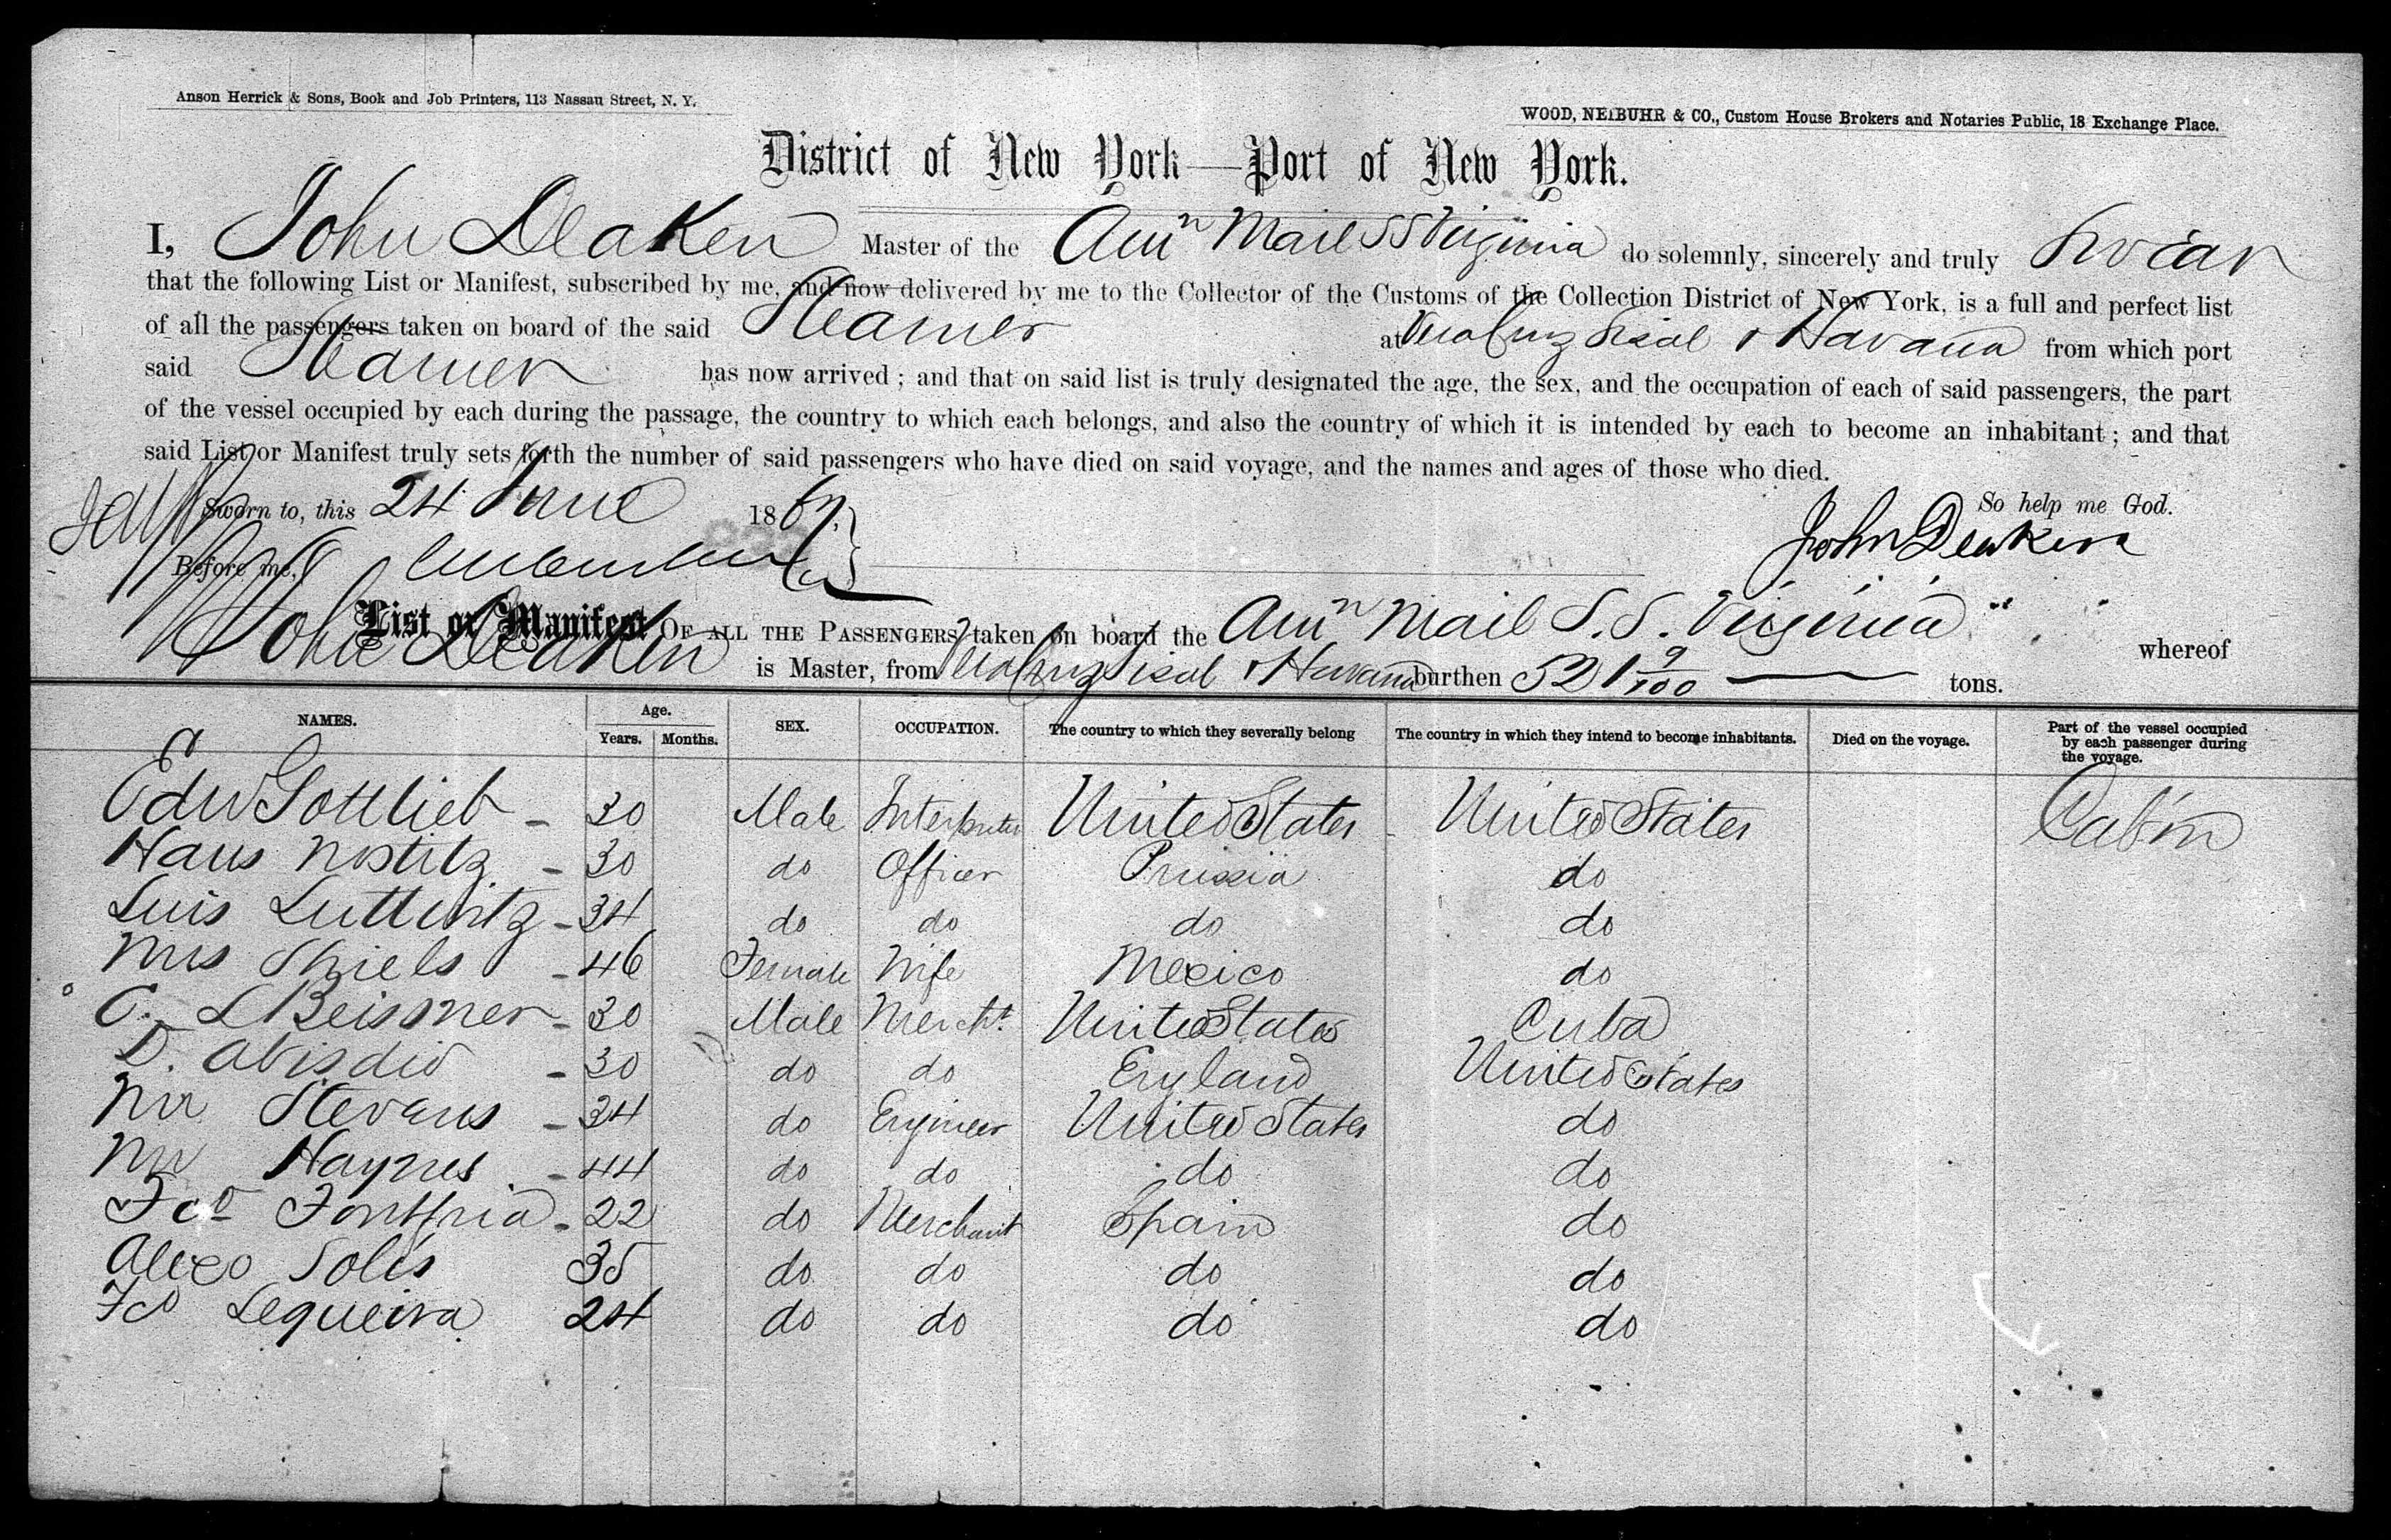 Anson Herrick & Sons, Book and Job Printers, 113 Nassau Street, N. Y.
WOOD, NEIBUHR & CO., Custom House Brokers and Notaries Public, 18 Exchange Place.
District of New York—Port of New York.
I, John Deaken Master of the Amn Mail SS Virginia do solemnly, sincerely and truly swear
that the following List or Manifest, subscribed by me, and now delivered by me to the Collector of the Customs of the Collection District of New York, is a full and perfect list
of all the passengers taken on board of the said Steamer at Vera Cruz Sisal & Havana from which port
said Steamer has now arrived ; and that on said list is truly designated the age, the sex, and the occupation of each of said passengers, the part
of the vessel occupied by each during the passage, the country to which each belongs, and also the country of which it is intended by each to become an inhabitant ; and that
said List or Manifest truly sets forth the number of said passengers who have died on said voyage, and the names and ages of those who died.
So help me God.
Sworn to, this 24 June 1867.
John Deaken
Before me,
List or Manifest OF ALL THE PASSENGERS taken on board the Amn Mail S.S. Virginia whereof
John Deaken is Master, from Vera Cruz Sisal & Havana burthen 521 9/100 tons.
NAMES. Age. Years. Months. SEX. OCCUPATION. The country to which they severally belong The country in which they intend to become inhabitants. Died on the voyage. Part of the vessel occupied by each passenger during the voyage.
Edw Gottlieb - 30 Male Interpreter United States United States Cabin
Hans Nostitz - 30 do Officer Prussia do
Luis Luttwitz - 34 do do do do
Mrs Shiels - 46 Female Wife Mexico do
C. L Beissner - 30 Male Mercht. United States Cuba
D. Abisdid - 30 do do England United States
Mr Stevens - 34 do Engineer United States do
Mr Haynes - 44 do do do do
Fco Fontfria - 22 do Merchant Spain do
Alexo Solis 35 do do do do
Fco Sequeira 24 do do do do